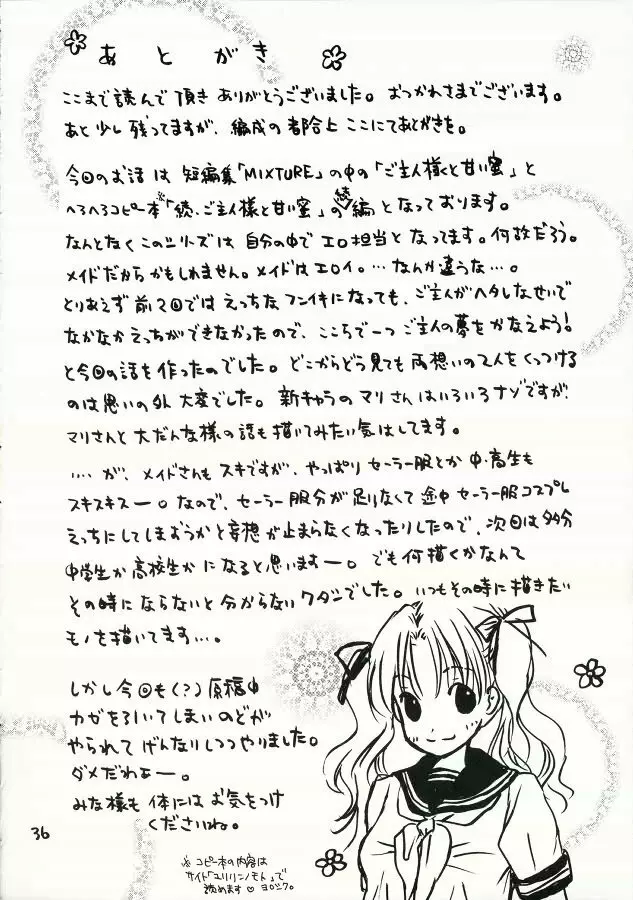 あとがき
ここまで読んで頂きありがとうございました。おつかれさまでございます。
あと少し残ってますが、編成の都合上ここにてあとがきを。
今回のお話は 短編集「MIXTURE」の中の「ご主人様と甘い蜜」と
へろへろコピー本※「続・ご主人様と甘い蜜」の続編となっております。
なんとなくこのシリーズは自分の中でエロ担当となってます。何故だろう。
メイドだからかもしれません。メイドはエロイ。…なんか違うな…。
とりあえず前2回ではえっちなフンイキになっても、ご主人がヘタレなせいで
なかなかえっちができなかったので、ここらで一つご主人の夢をかなえよう!
と今回の話を作ったのでした。どこからどう見ても両想いの2人をくっつける
のは思いの外大変でした。新キャラのマリさんはいろいろナゾですが、
マリさんと大だんな様の話も描いてみたい気はしてます。
…. が、メイドさんもスキですが、やっぱりセーラー服とか中・高生も
スキスキスー。なので、セーラー服分が足りなくて途中セーラー服コスプレ
えっちにしてしまおうかと妄想が止まらなくなったりしたので、次回は多分
中学生か高校生かになると思いますー。でも何描くかなんて
その時にならないと分からないワタシでした。いつもその時に描きたい
モノを描いてます…。
しかし今回も(?)原稿中
カゼを引いてしまいのどが
やられてげんなりしつつやりました。
ダメだわぁー。
みな様も体にはお気をつけ
くださいね。
※コピー本の内容は
サイト「ユリリンノモト」で
読めます♡ヨロシク。
36